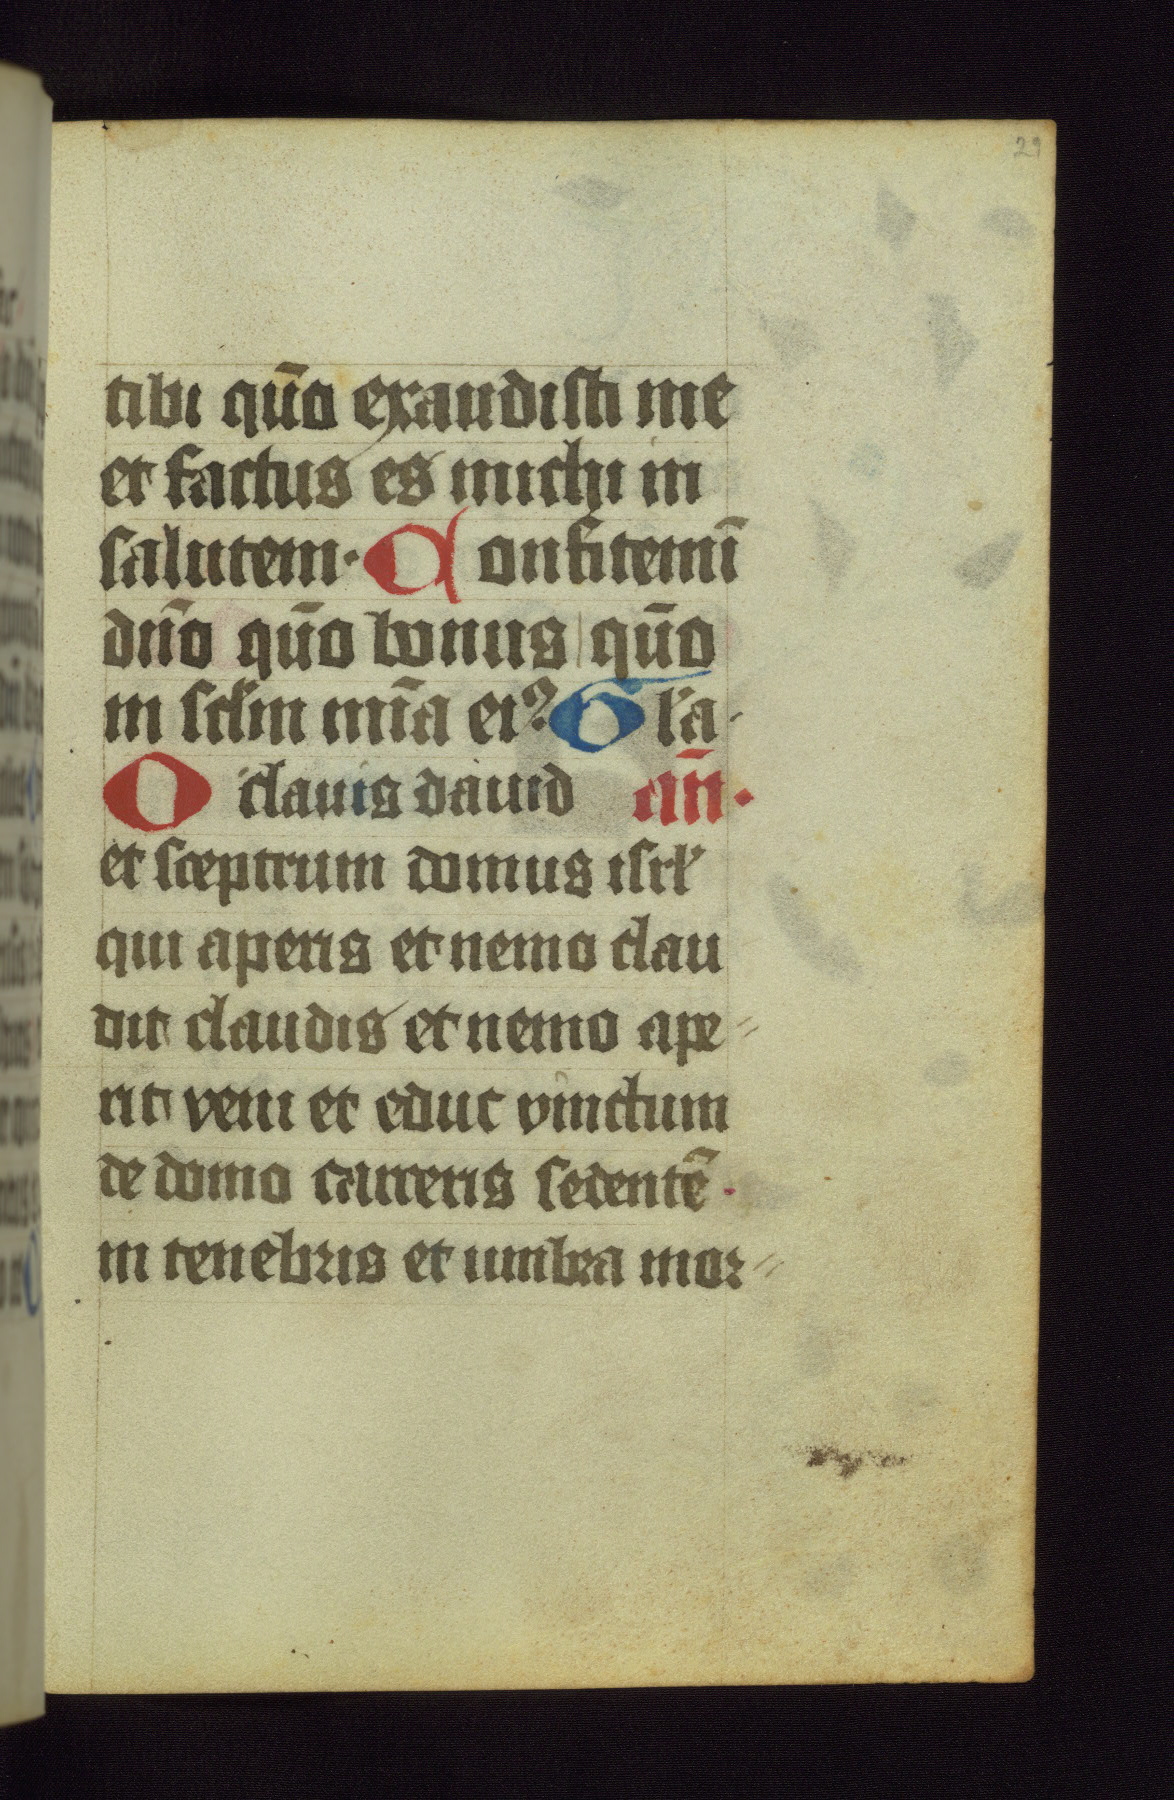 29
tibi qūo exaudisti me
et factus es michi in
salutem· Confitemī
dn̄o qūo bonus qūo
in sclm̄ mīa ei⁹ Gl'a
O clauis dauid an̄·
et sceptrum domus isrl'
qui aperis et nemo clau
dit claudis et nemo ape=
rit veni et educ vinctum
de domo carceris sedentē
in tenebris et umbra mor=